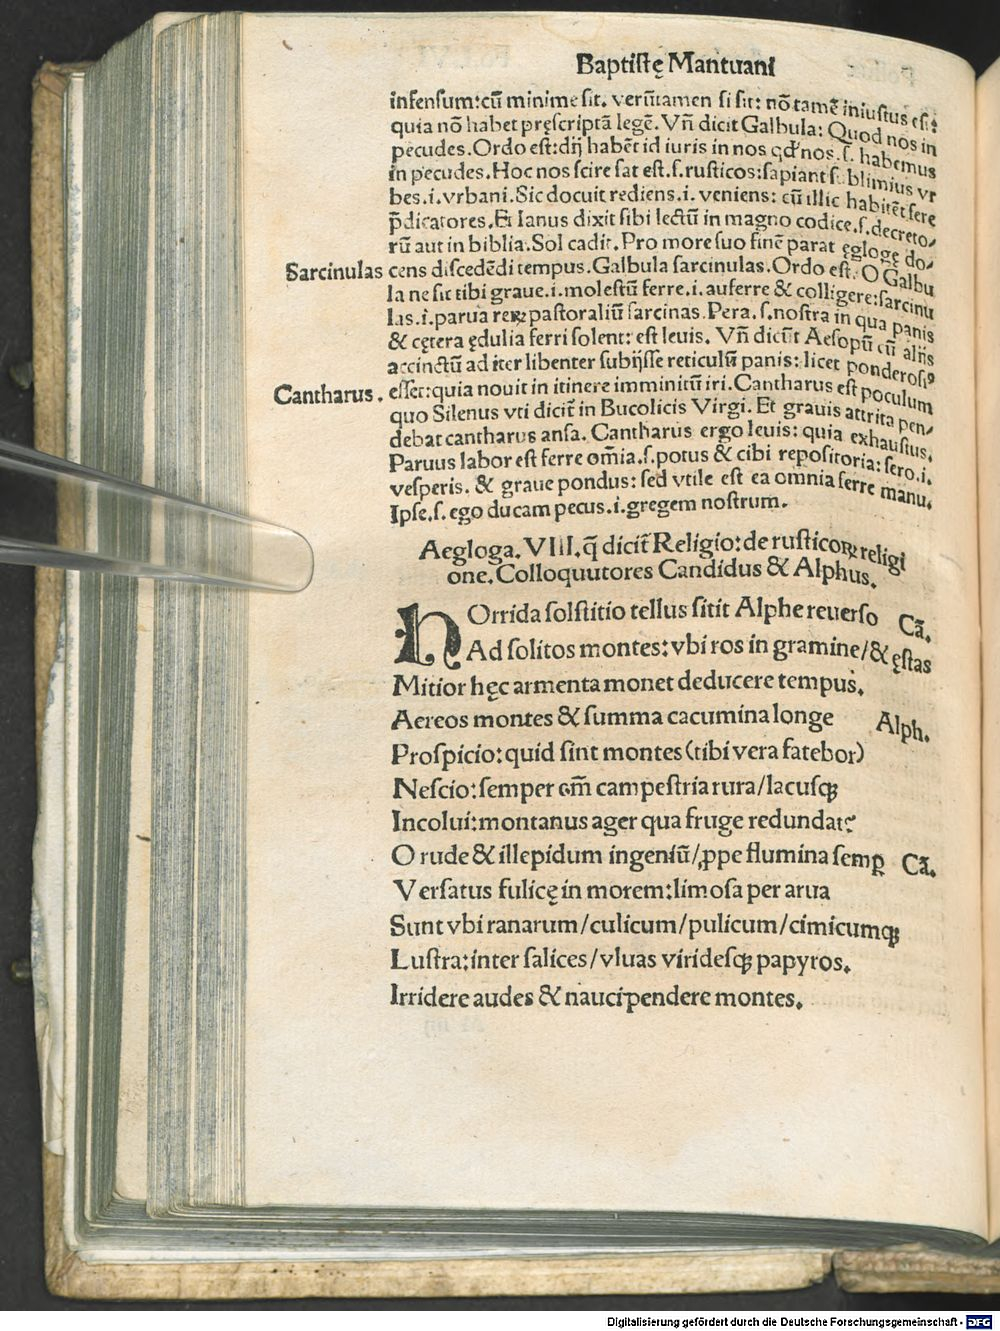 Baptistę Mantuani
infensum:cū minime sit. verūtamen si sit: nō tamē iniustus est:
quia nō habet pręscriptā legē. Vñ dicit Galbula: Quod nos in
pecudes. Ordo est:dij habēt id iuris in nos qd̛ nos.s. habemus
in pecudes. Hoc nos scire sat est.s.rusticos:sapiant sublimius vr
bes.i.vrbani. Sic docuit rediens.i. veniens: cū illic habitēt fere
p̄dicatores. Et Ianus dixit sibi lectū in magno codice.s.decreto⸗
rū aut in biblia. Sol cadit. Pro more suo finē parat ęglogę do⸗
Sarcinulas cens discedēdi tempus. Galbula sarcinulas. Ordo est. O Galbu
la ne sit tibi graue.i.molestū ferre.i.auferre & colligere:sarcinu
las.i.parua reꝝ pastoraliū sarcinas. Pera.s.nostra in qua panis
& cętera ędulia ferri solent: est leuis. Vñ dicūt Aesopū cū aliis
accinctū ad iter libenter subijsse reticulū panis: licet ponderosiꝰ
Cantharus. esset:quia nouit in itinere imminitū iri. Cantharus est poculum
quo Silenus vti dicit̄ in Bucolicis Virgi. Et grauis attrita pen⸗
debat cantharus ansa. Cantharus ergo leuis: quia exhaustus.
Paruus labor est ferre om̄ia.s.potus & cibi repositoria: sero.i.
vesperis. & graue pondus: sed vtile est ea omnia ferre manu.
Ipse.s.ego ducam pecus.i.gregem nostrum.
Aegloga. VIII. q̄ dicit̄ Religio: de rusticoꝝ religi
one. Colloquutores Candidus & Alphus.
HOrrida solstitio tellus sitit Alphe reuerso Cā.
Ad solitos montes: vbi ros in gramine/& ęstas
Mitior hęc armenta monet deducere tempus.
Aereos montes & summa cacumina longe Alph.
Prospicio: quid sint montes (tibi vera fatebor)
Nescio: semper em̄ campestria rura/lacusqꝫ
Incolui: montanus ager qua fruge redundat?
O rude & illepidum ingeniū/ꝓpe flumina semꝑ Cā.
Versatus fulicę in morem: limosa per arua
Sunt vbi ranarum/culicum/pulicum/cimicumqꝫ
Lustra: inter salices/vluas viridesqꝫ papyros.
Irridere audes & naucipendere montes.
Digitalisierung gefördert durch die Deutsche Forschungsgemeinschaft - DFG